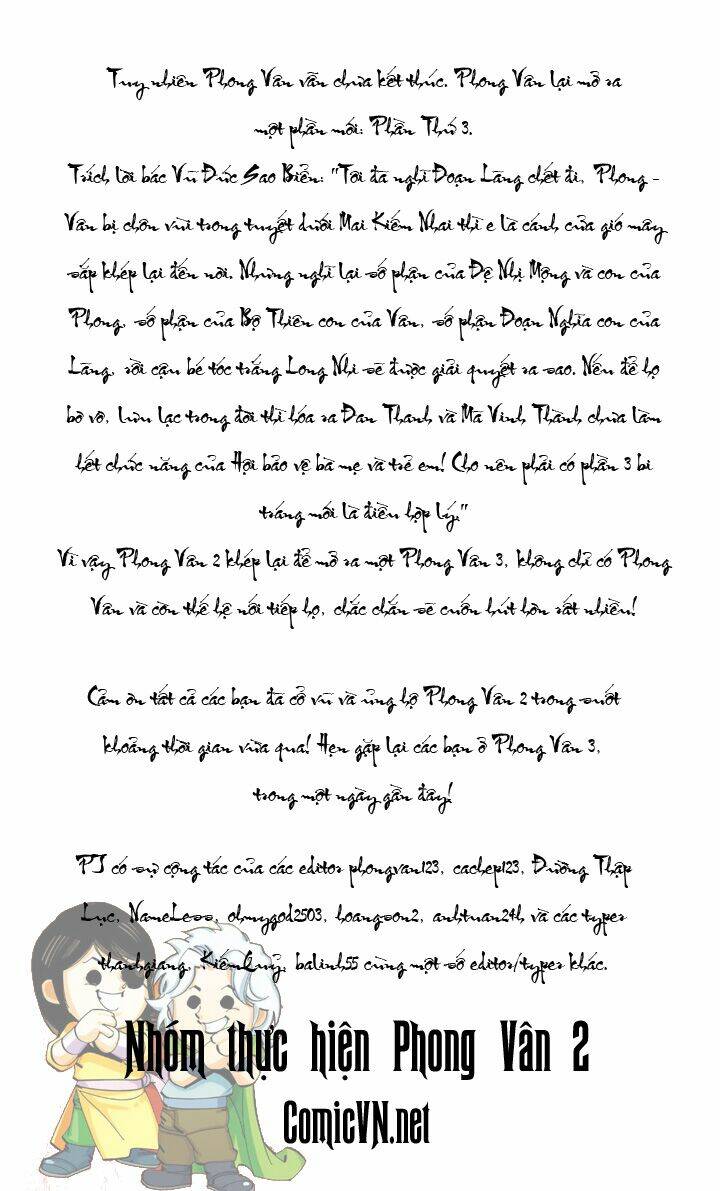 Tuy nhiên Phong Vân vẫn chưa kết thúc. Phong Vân lại mở ra
một phần mới: Phần Thứ 3.
Trích lời bác Vũ Đức Sao Biển: "Tôi đã nghĩ Đoạn Lãng chết đi, Phong -
Vân bị chôn vùi trong tuyết dưới Mai Kiếm Nhai thì e là cánh cửa gió mây
sắp khép lại đến nơi. Nhưng nghĩ lại số phận của Đệ Nhị Mộng và con của
Phong, số phận của Bộ Thiên con của Vân, số phận Đoạn Nghĩa con của
Lãng, rồi cậu bé tóc trắng Long Nhi sẽ được giải quyết ra sao. Nếu để họ
bơ vơ, lưu lạc trong đời thì hóa ra Đan Thanh và Mã Vinh Thành chưa làm
hết chức năng của Hội bảo vệ bà mẹ và trẻ em! Cho nên phải có phần 3 bi
tráng mới là điều hợp lý."
Vì vậy Phong Vân 2 khép lại để mở ra một Phong Vân 3, không chỉ có Phong
Vân và còn thế hệ nối tiếp họ, chắc chắn sẽ cuốn hút hơn rất nhiều!
Cảm ơn tất cả các bạn đã cổ vũ và ủng hộ Phong Vân 2 trong suốt
khoảng thời gian vừa qua! Hẹn gặp lại các bạn ở Phong Vân 3,
trong một ngày gần đây!
PJ có sự cộng tác của các editor phongvan123, cachep123, Đường Thập
Lục, NameLess, ohmygod2503, hoangson2, anhtuan24h và các typer
thanhgiang, KiếmQuỷ, balinh55 cùng một số editor/typer khác.
Nhóm thực hiện Phong Vân 2
ComicVN.net